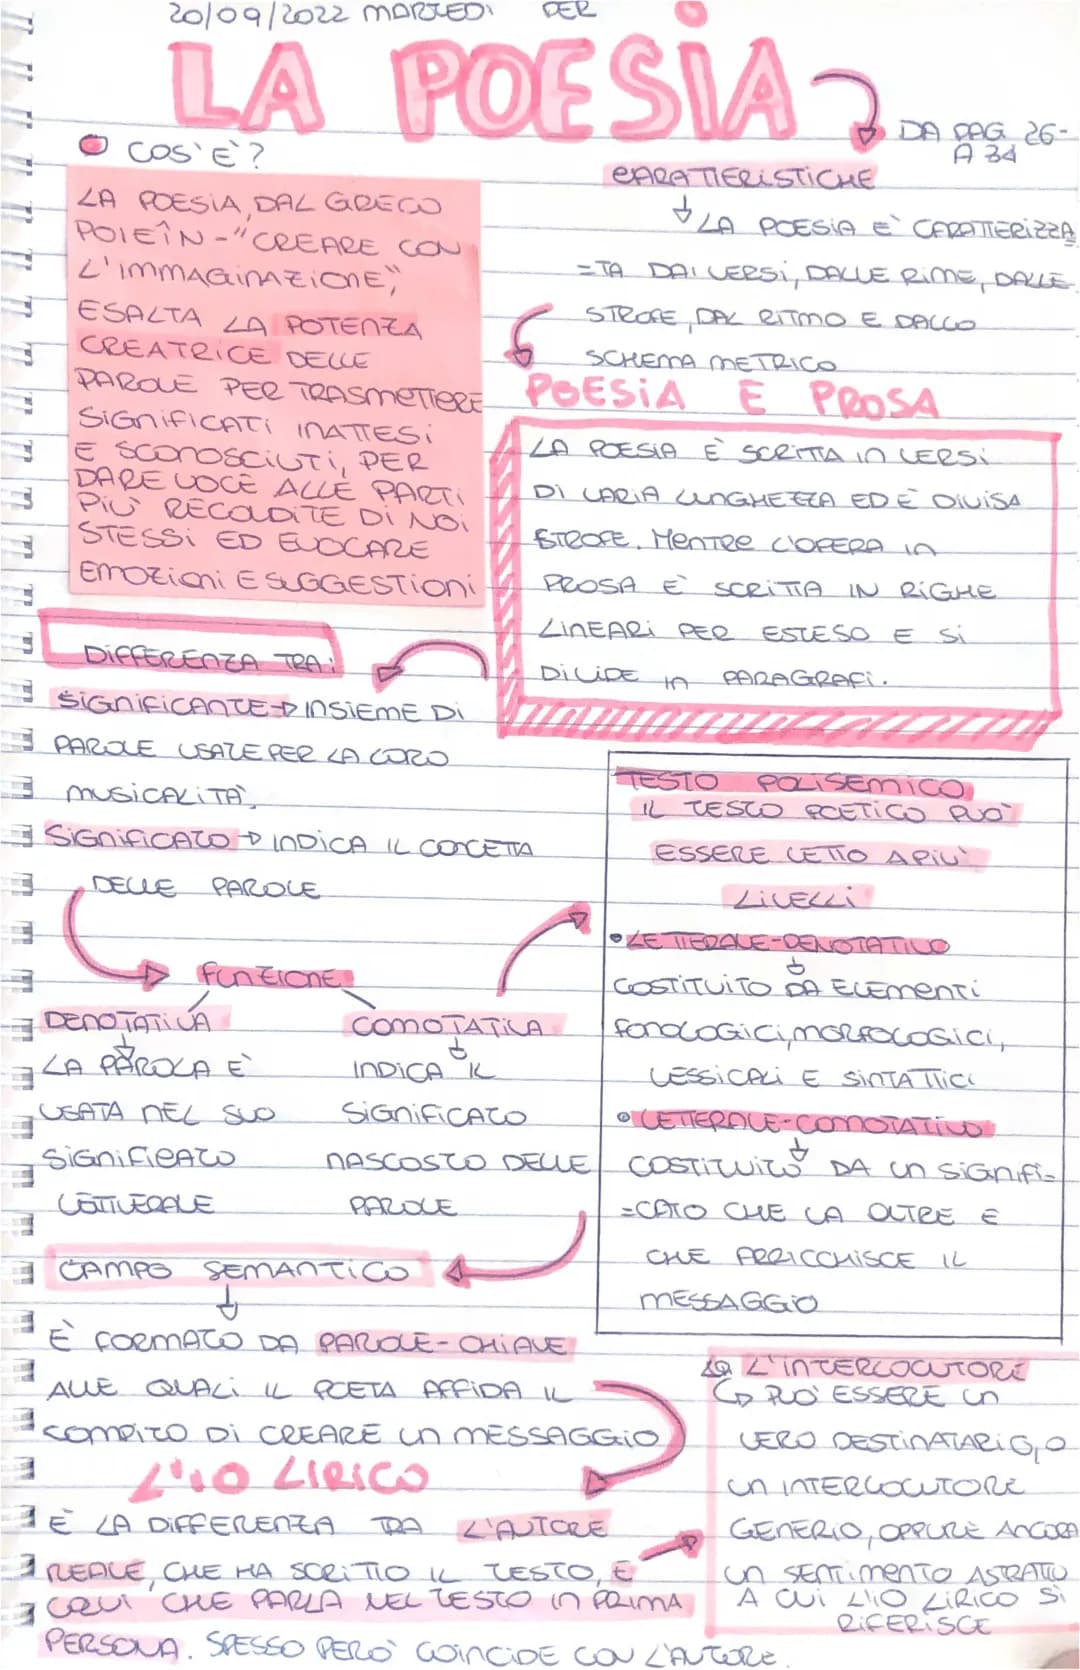 20/09/2022 MARTEDÌ PER
LA POESIA
DA PAG. 26-
A 34
COS'È?
LA POESIA, DAL GRECO
POIEÎN-"CREARE CON
L'IMMAGINAZIONE",
ESALTA LA POTENZA
CREATRICE DELLE
PAROLE PER TRASMETTERE
SIGNIFICATI INATTESI
E SCONOSCIUTI, PER
DARE VOCE ALLE PARTI
PIÙ RECONDITE DI NOI
STESSI ED EVOCARE
EMOZIONI E SUGGESTIONI
CARATTERISTICHE
LA POESIA È CARATTERIZZA
=TA DAI VERSI, DALLE RIME, DALLE
STROFE, DAL RITMO E DALLO
SCHEMA METRICO
POESIA E PROSA
LA POESIA È SCRITTA IN VERSI
DI VARIA LUNGHEZZA ED È DIVISA
STROFE. MENTRE L'OPERA IN
PROSA È SCRITTA IN RIGHE
LINEARI PER ESTESO E SI
DIVIDE IN PARAGRAFI.
DIFFERENZA TRA:
SIGNIFICANTE→INSIEME DI
PAROLE USATE PER LA LORO
MUSICALITÀ,
SIGNIFICATO→INDICA IL CONCETTO
DELLE PAROLE
FUNZIONE
DENOTATIVA
LA PAROLA È
USATA NEL SUO
SIGNIFICATO
LETTERALE
CONNOTATIVA
INDICA IL
SIGNIFICATO
NASCOSTO DELLE
PAROLE
TESTO POLISEMICO
IL TESTO POETICO PUÒ
ESSERE LETTO A PIÙ
LIVELLI
• LETTERALE-DENOTATIVO
COSTITUITO DA ELEMENTI
FONOLOGICI, MORFOLOGICI,
LESSICALI E SINTATTICI
• LETTERALE-CONNOTATIVO
COSTITUITO DA UN SIGNIFI=
=CATO CHE VA OLTRE E
CHE ARRICCHISCE IL
MESSAGGIO
CAMPO SEMANTICO
È FORMATO DA PAROLE-CHIAVE
ALLE QUALI IL POETA AFFIDA IL
COMPITO DI CREARE UN MESSAGGIO
L'IO LIRICO
È LA DIFFERENZA TRA L'AUTORE
REALE, CHE HA SCRITTO IL TESTO, E
COLUI CHE PARLA NEL TESTO IN PRIMA
PERSONA. SPESSO PERÒ COINCIDE CON L'AUTORE.
L'INTERLOCUTORE
PUÒ ESSERE UN
VERO DESTINATARIO, O
UN INTERLOCUTORE
GENERIO, OPPURE ANCORA
UN SENTIMENTO ASTRATTO
A CUI L'IO LIRICO SI
RIFERISCE